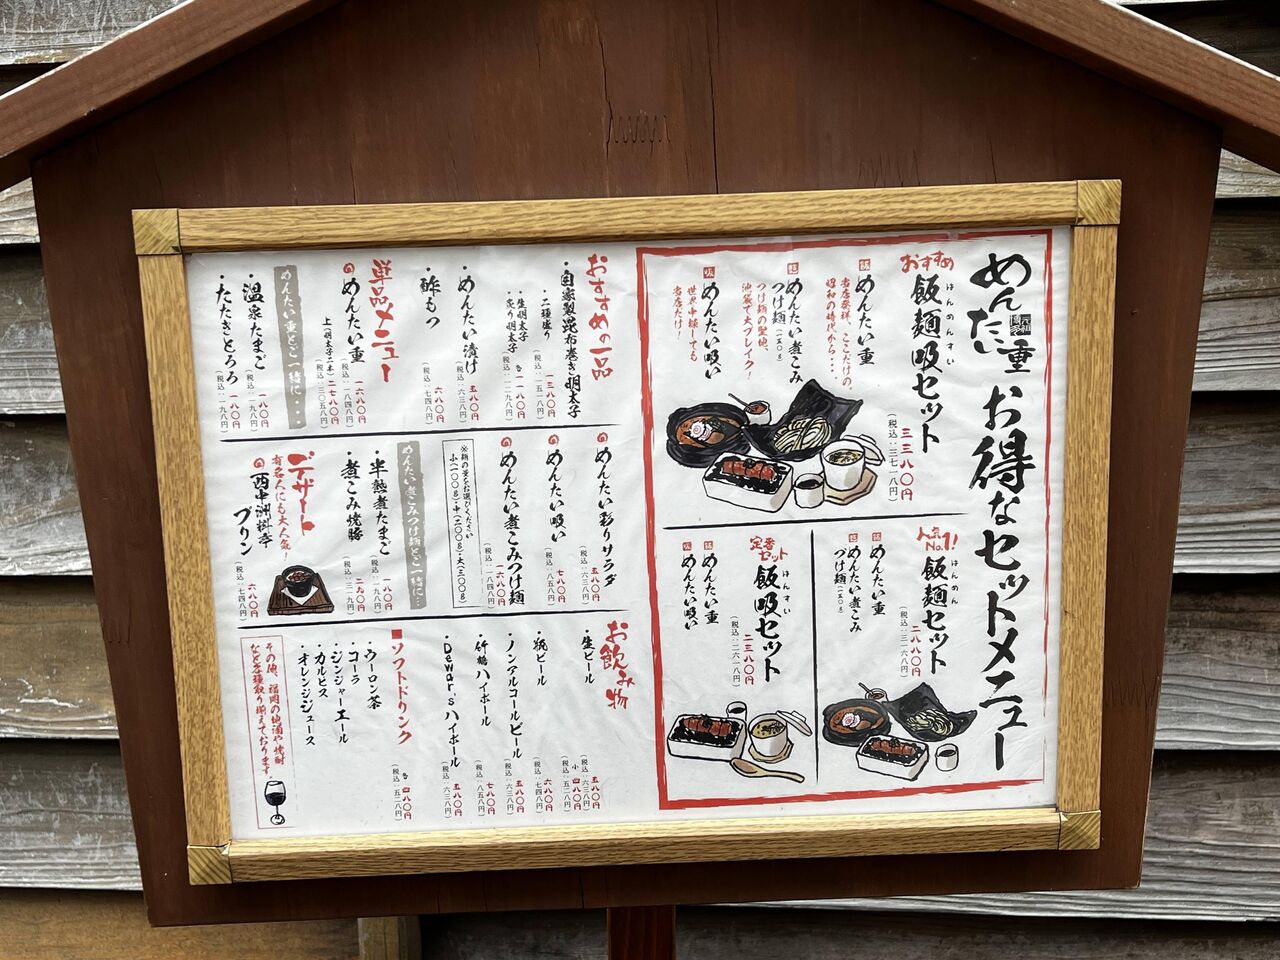 めんたい重 お得なセットメニュー
元祖博多
おすすめ
飯麺吸セット
はんめんすい
三三八〇円
(税込:三七一八円)
飯 めんたい重
当店発祥、ここだけの。
昭和の時代から・・・
麺 めんたい煮こみ
つけ麺(一五〇g)
つけ麺の聖地、
池袋で大ブレイク!
吸 めんたい吸い
世界中探しても
当店だけ!
人気No.1!
飯麺セット
はんめん
二八八〇円
(税込:三一六八円)
飯 めんたい重
麺 めんたい煮こみ
つけ麺(一五〇g)
定番セット
飯吸セット
はんすい
二三八〇円
(税込:二六一八円)
飯 めんたい重
吸 めんたい吸い
おすすめの一品
・自家製昆布巻き明太子
・二種盛り
一三八〇円
(税込:一五一八円)
・生明太子
・炙り明太子
各 一一八〇円
(税込:一二九八円)
・めんたい漬け
五八〇円
(税込:六三八円)
・酢もつ
六八〇円
(税込:七四八円)
単品メニュー
めんたい重
一六八〇円
(税込:一八四八円)
上(明太子二本)
二七八〇円
(税込:三〇五八円)
めんたい重とご一緒に・・・
・温泉たまご
一八〇円
(税込:一九八円)
・たたきとろろ
一八〇円
(税込:一九八円)
めんたい彩りサラダ
五八〇円
(税込:六三八円)
めんたい吸い
七八〇円
(税込:八五八円)
めんたい煮こみつけ麺
一六八〇円
(税込:一八四八円)
※麺の量をお選びください
小(一〇〇g)・中(二〇〇g)・大(三〇〇g)
めんたい煮こみつけ麺とご一緒に・・・
・半熟煮たまご
一八〇円
(税込:一九八円)
・煮こみ焼豚
二九〇円
(税込:三一九円)
デザート
有名人にも大人気!
西中洲料亭
プリン
六八〇円
(税込:七四八円)
お飲み物
・生ビール
五八〇円
(税込:六三八円)
小 四八〇円
(税込:五二八円)
・瓶ビール
六八〇円
(税込:七四八円)
・ノンアルコールビール
五八〇円
(税込:六三八円)
・竹鶴ハイボール
七八〇円
(税込:八五八円)
・Dewar'sハイボール
五八〇円
(税込:六三八円)
■ソフトドリンク
各 四八〇円
(税込:五二八円)
・ウーロン茶
・コーラ
・ジンジャーエール
・カルピス
・オレンジジュース
その他、福岡の地酒や焼酎
など各種取り揃えております。